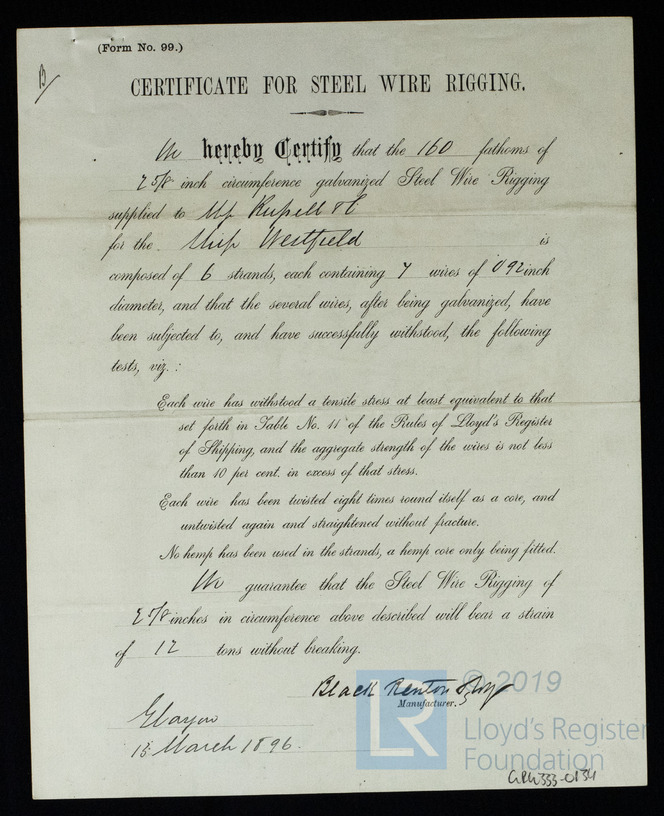 (Form No. 99.)
B
CERTIFICATE FOR STEEL WIRE RIGGING.
We hereby Certify that the 160 fathoms of
2 5/8 inch circumference galvanized Steel Wire Rigging
supplied to Mss Russell & Co
for the Ship Westfield is
composed of 6 strands, each containing 7 wires of .092 inch
diameter, and that the several wires, after being galvanized, have
been subjected to, and have successfully withstood, the following
tests, viz. :
Each wire has withstood a tensile stress at least equivalent to that
set forth in Table No. 11 of the Rules of Lloyd's Register
of Shipping, and the aggregate strength of the wires is not less
than 10 per cent. in excess of that stress.
Each wire has been twisted eight times round itself as a core, and
untwisted again and straightened without fracture.
No hemp has been used in the strands, a hemp core only being fitted.
We guarantee that the Steel Wire Rigging of
2 5/8 inches in circumference above described will bear a strain
of 12 tons without breaking.
Black Renton
Manufacturer.
Glasgow
13 March 1896.
LR
© 2019
Lloyd's Register
Foundation